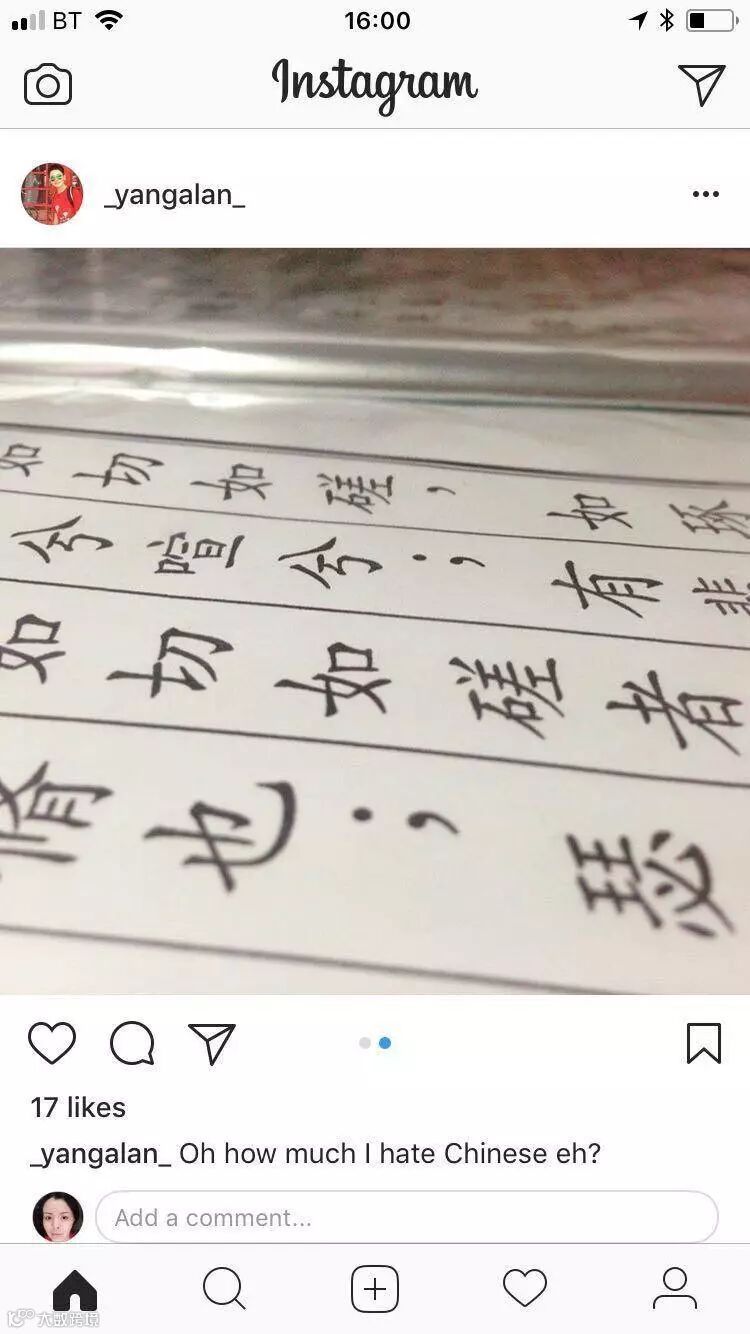 BT
16:00
Instagram
_yangalan_
如切如磋，如琢
兮喧兮；有
如切如磋者
脩也；瑟
17 likes
_yangalan_ Oh how much I hate Chinese eh?
Add a comment...
大数跨境